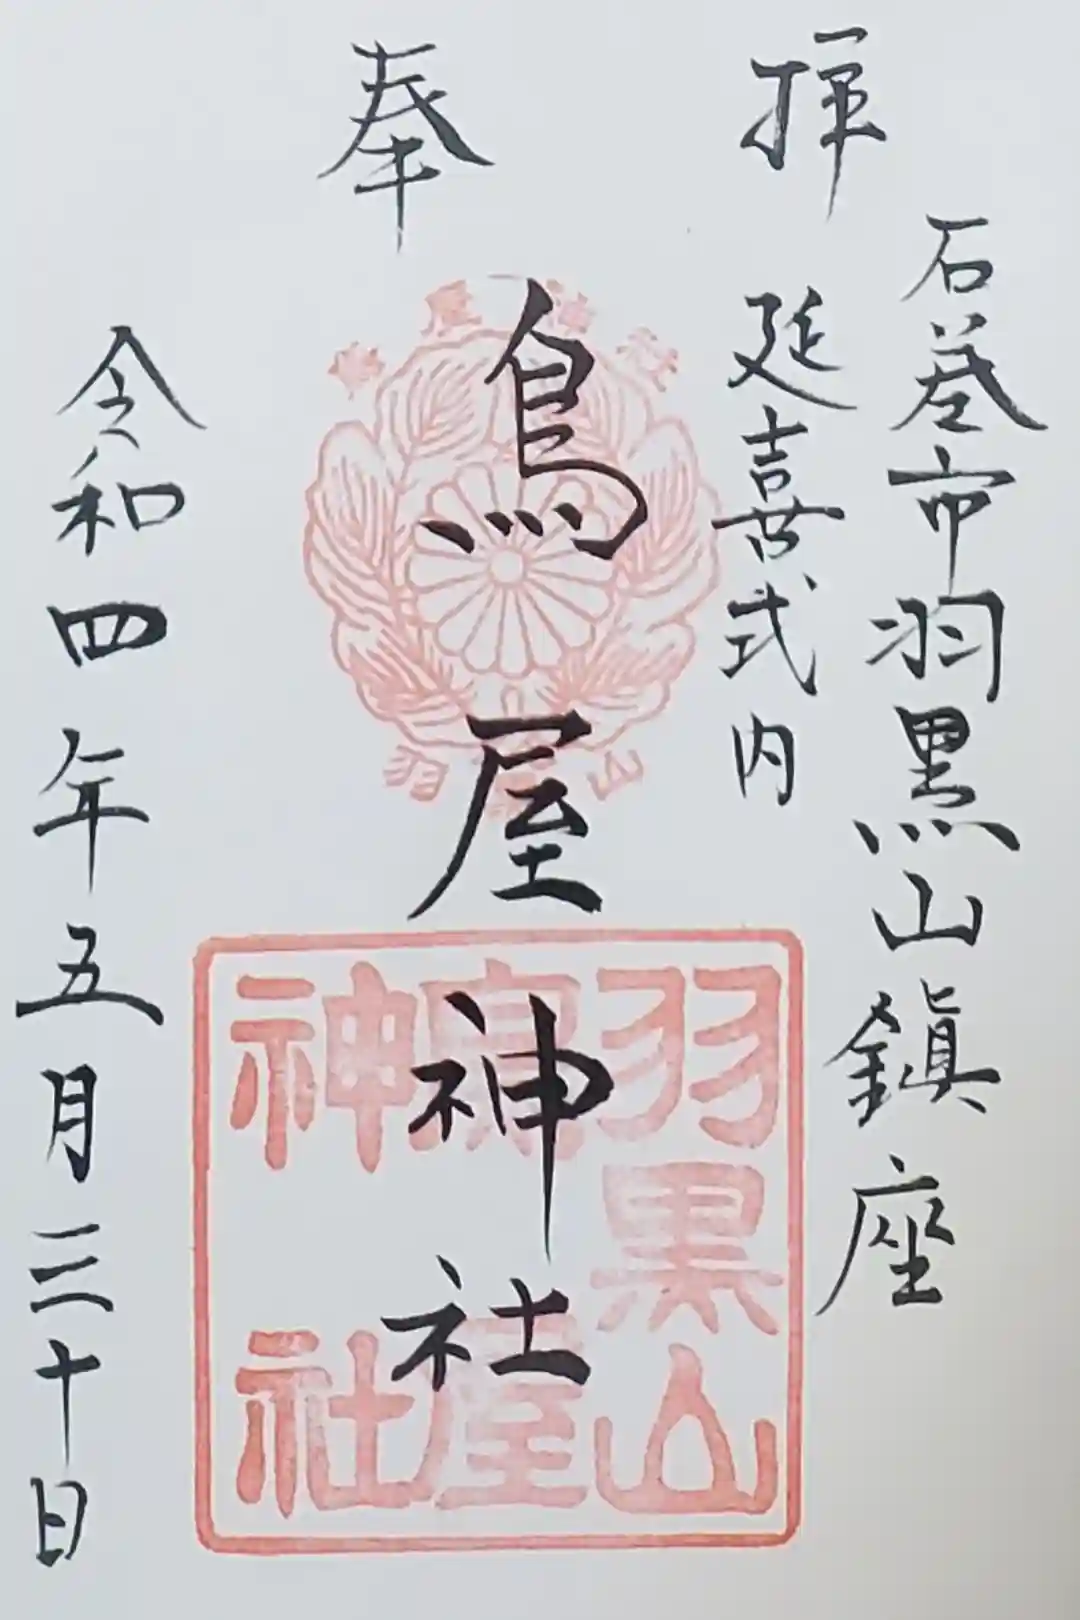 奉拝
石巻市羽黒山鎮座
延喜式内
鳥屋神社
令和四年五月三十日
羽黒山
鳥屋
神社
羽 山